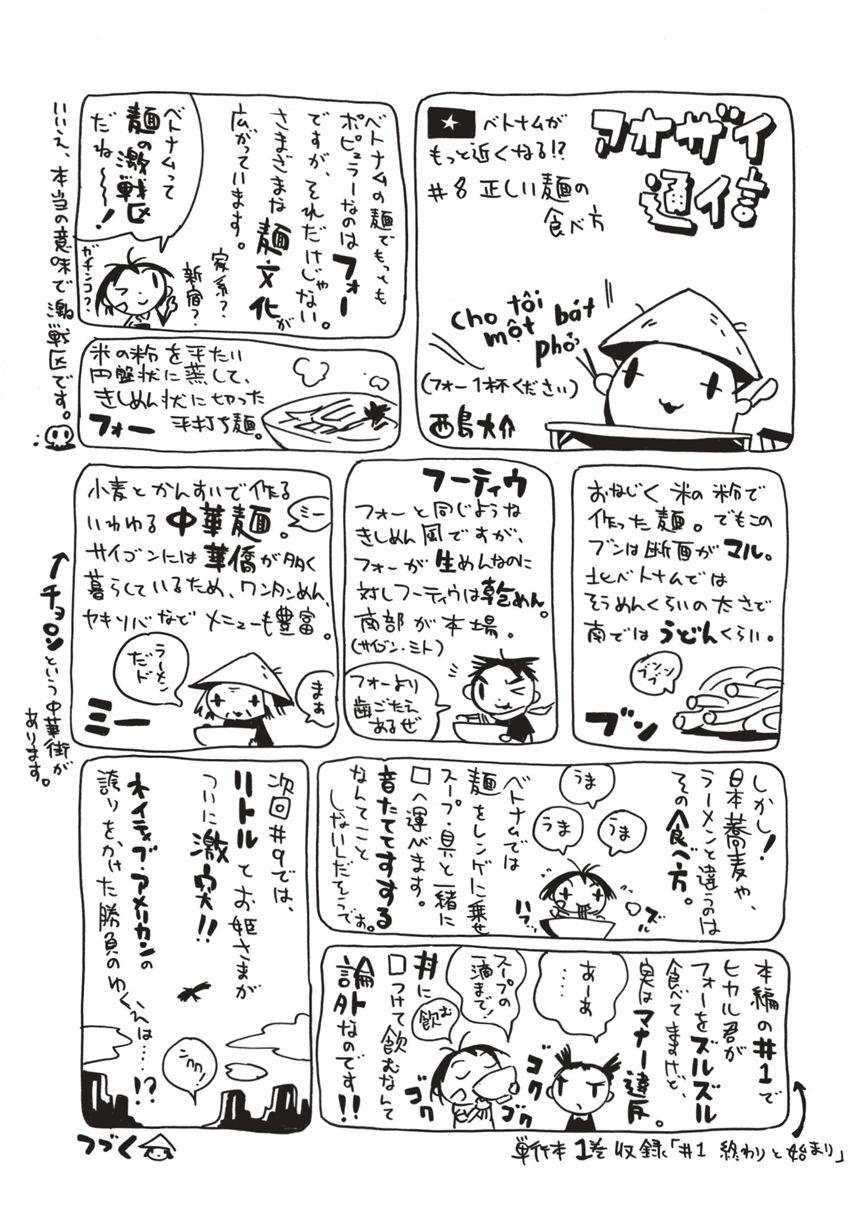 アオザイ
通信
ベトナムが
もっと近くなる!?
#8 正しい麺の
食べ方
cho tôi
một bát
phở
(フォー1杯ください)
西島大介
ベトナムの麺でもっとも
ポピュラーなのはフォー
ですが、それだけじゃない。
さまざまな麺文化が
広がっています。
ベトナムって
麺の激戦区
だね〜〜!
家系?
新宿?
ガチンコ?
いいえ、本当の意味で激戦区です。
米の粉を平たい
円盤状に蒸して、
きしめん状に切った
フォー 平打ち麺。
おなじく米の粉で
作った麺。でもこの
ブンは断面がマル。
北ベトナムでは
そうめんくらいの太さで
南ではうどんくらい。
ブン
フーティウ
フォーと同じような
きしめん風ですが、
フォーが生めんなのに
対しフーティウは乾めん。
南部が本場。
(サイゴン・ミト)
フォーより
歯ごたえ
あるぜ
小麦とかんすいで作る
いわゆる中華麺。
ミー
サイゴンには華僑が多く
暮らしているため、ワンタンめん、
ヤキソバなどメニューも豊富。
ラーメン
だド
まぁ
ミー
↑チョロンという中華街が
あります。
しかし!
日本蕎麦や、
ラーメンと違うのは
その食べ方。
うま
うま
うま
ズル
ハフ…
ベトナムでは
麺をレンゲに乗せ
スープ・具と一緒に
口へ運べます。
音たててすする
なんてこと
しないんだそうです。
本編の#1で
ヒカル君が
フォーをズルズル
食べてますけど、
実はマナー違反。
あーあ
……
スープの
一滴まで!
飲む
ゴク
ゴク
ゴク
丼に
口つけて飲むなんて
論外なのです!!
単行本1巻収録「#1 終わりと始まり」
次回#9では、
リトルとお姫さまが
ついに激突!!
ネイティブ・アメリカンの
誇りをかけた勝負のゆくえは……!?
つづく